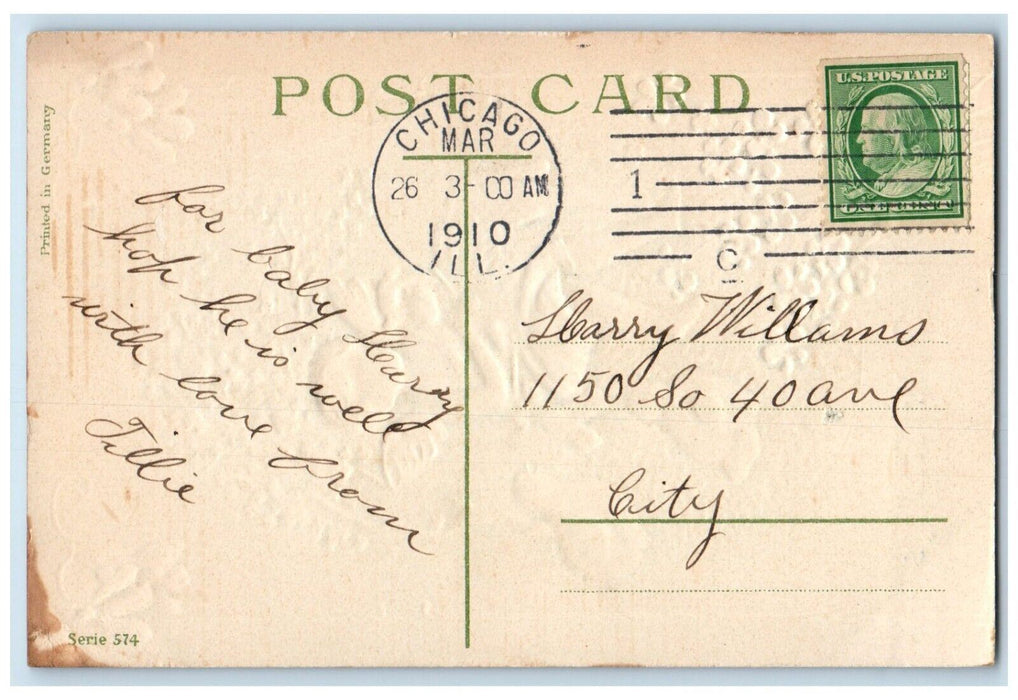 POST CARD
Printed in Germany
CHICAGO
MAR
26 3-00 AM
1910
ILL.
1
C
U.S. POSTAGE
for baby Harry
hop he is well
with love from
Tillie
Harry Williams
1150 So 40 ave
City
Serie 574